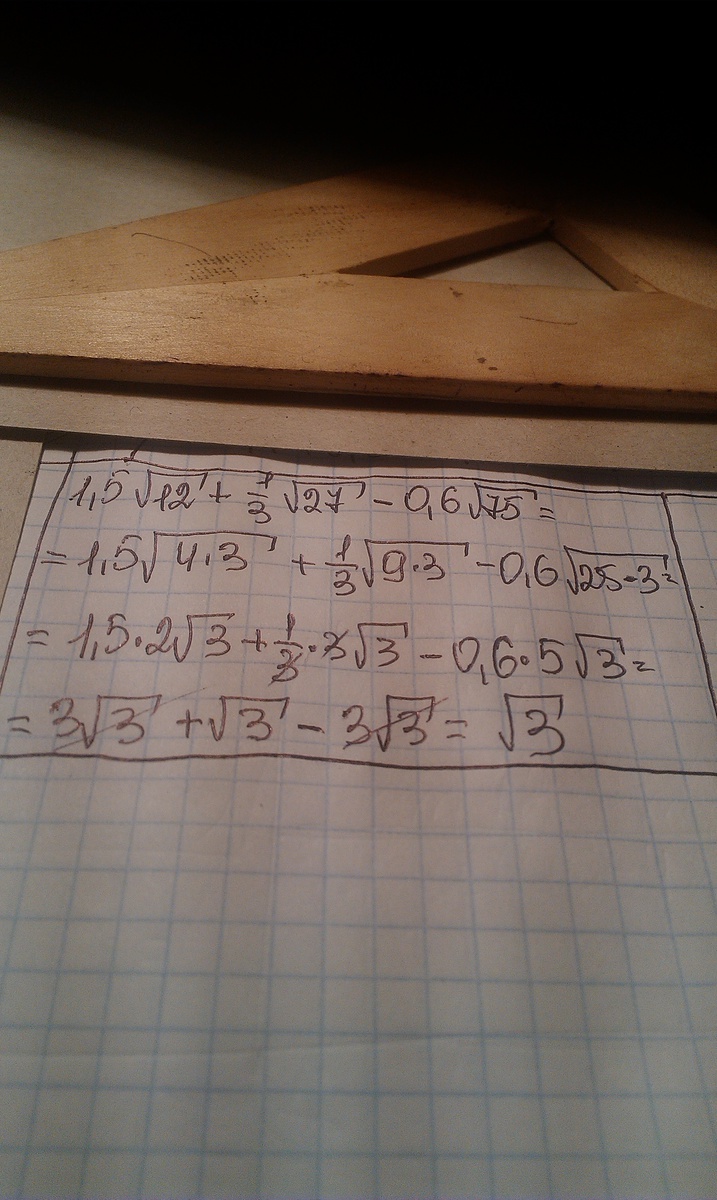 1,5√12 + 1/3 √27 - 0,6√75 =
= 1,5√4·3 + 1/3 √9·3 - 0,6√25·3 =
= 1,5·2√3 + 1/3 · 3√3 - 0,6·5√3 =
= 3√3 + √3 - 3√3 = √3